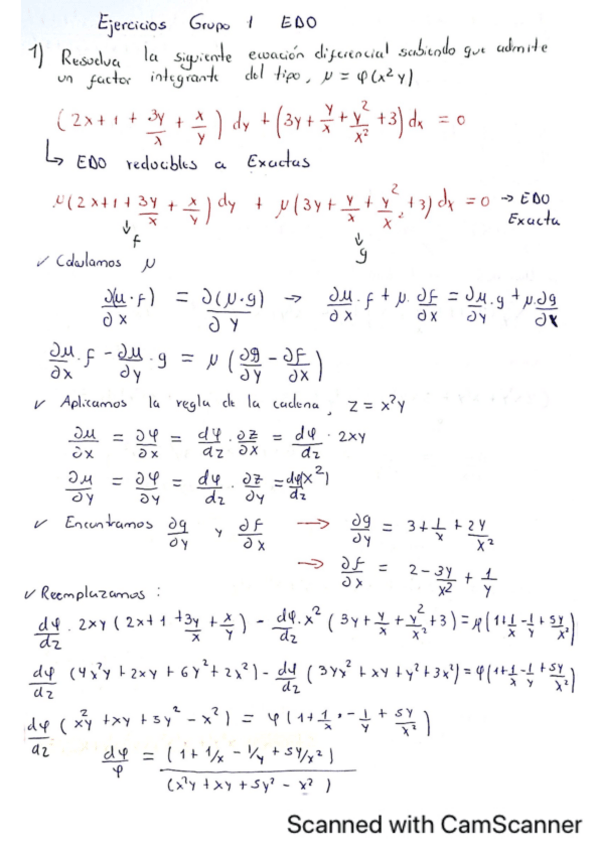 Ejercicios Grupo 1 EDO
1) Resuelva la siguiente ecuación diferencial sabiendo que admite
un factor integrante del tipo, μ = φ(x²y)
(2x + 1 + 3y/x + x/y) dy + (3y + y/x + y²/x² + 3) dx = 0
↳ EDO reducibles a Exactas
μ(2x + 1 + 3y/x + x/y) dy + μ(3y + y/x + y²/x² + 3) dx = 0 → EDO Exacta
↓ f ↓ g
✓ Calculamos μ
∂(μ·f)/∂x = ∂(μ·g)/∂y → ∂μ/∂x · f + μ · ∂f/∂x = ∂μ/∂y · g + μ · ∂g/∂x
∂μ/∂x · f - ∂μ/∂y · g = μ (∂g/∂y - ∂f/∂x)
✓ Aplicamos la regla de la cadena, z = x²y
∂μ/∂x = ∂φ/∂x = dφ/dz · ∂z/∂x = dφ/dz · 2xy
∂μ/∂y = ∂φ/∂y = dφ/dz · ∂z/∂y = dφ/dz (x²)
✓ Encontramos ∂g/∂y y ∂f/∂x → ∂g/∂y = 3 + 1/x + 2y/x²
→ ∂f/∂x = 2 - 3y/x² + 1/y
✓ Reemplazamos :
dφ/dz · 2xy (2x + 1 + 3y/x + x/y) - dφ/dz · x² (3y + y/x + y²/x² + 3) = μ(1 + 1/x - 1/y + 5y/x²)
dφ/dz (4x²y + 2xy + 6y² + 2x²) - dφ/dz (3yx² + xy + y² + 3x²) = φ(1 + 1/x - 1/y + 5y/x²)
dφ/dz (x²y + xy + 5y² - x²) = φ(1 + 1/x - 1/y + 5y/x²)
dφ/φ = (1 + 1/x - 1/y + 5y/x²) / (x²y + xy + 5y² - x²)
Scanned with CamScanner